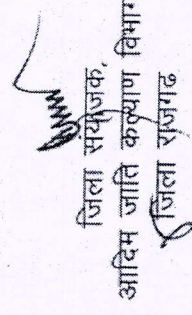 जिला संयोजक,
आदिम जाति कल्याण विभाग
जिला राजगढ